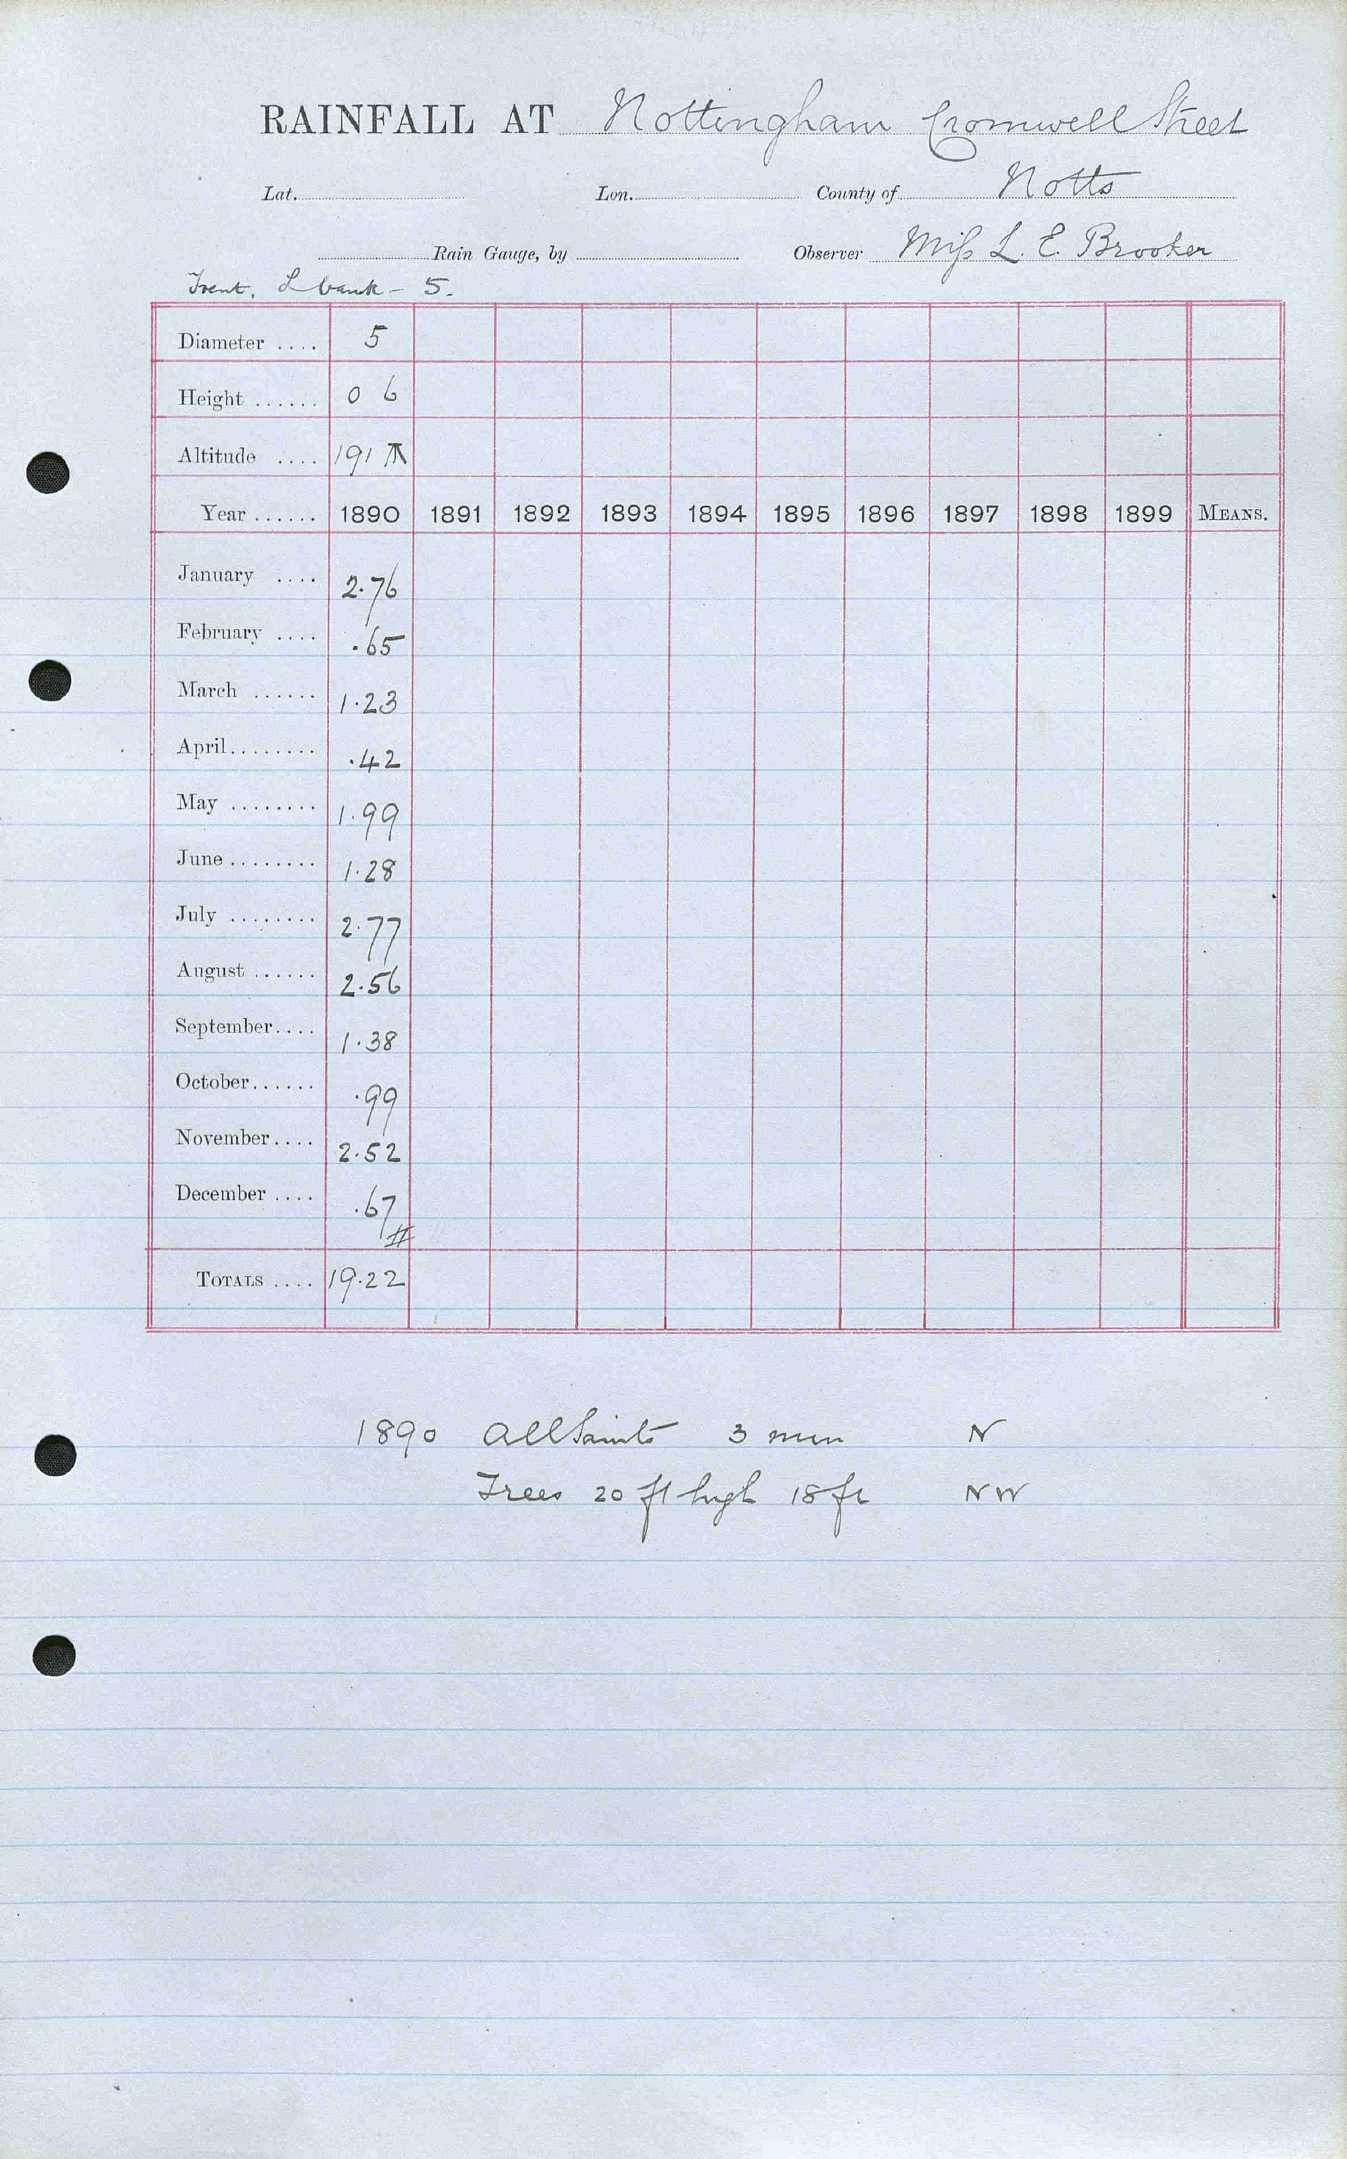 RAINFALL AT Nottingham Cromwell Street
Lat. Lon. County of Notts
Rain Gauge, by Observer Miss L. E. Brooker
Trent, L bank - 5.
Diameter .... 5
Height ...... 0 6
Altitude .... 191
Year ...... 1890 1891 1892 1893 1894 1895 1896 1897 1898 1899 MEANS.
January .... 2.76
February .... .65
March ...... 1.23
April........ .42
May ........ 1.99
June ........ 1.28
July ........ 2.77
August ...... 2.56
September.... 1.38
October...... .99
November.... 2.52
December .... .67
#
TOTALS .... 19.22
1890 All Saints 3 min N
Trees 20 ft high 18 ft NW